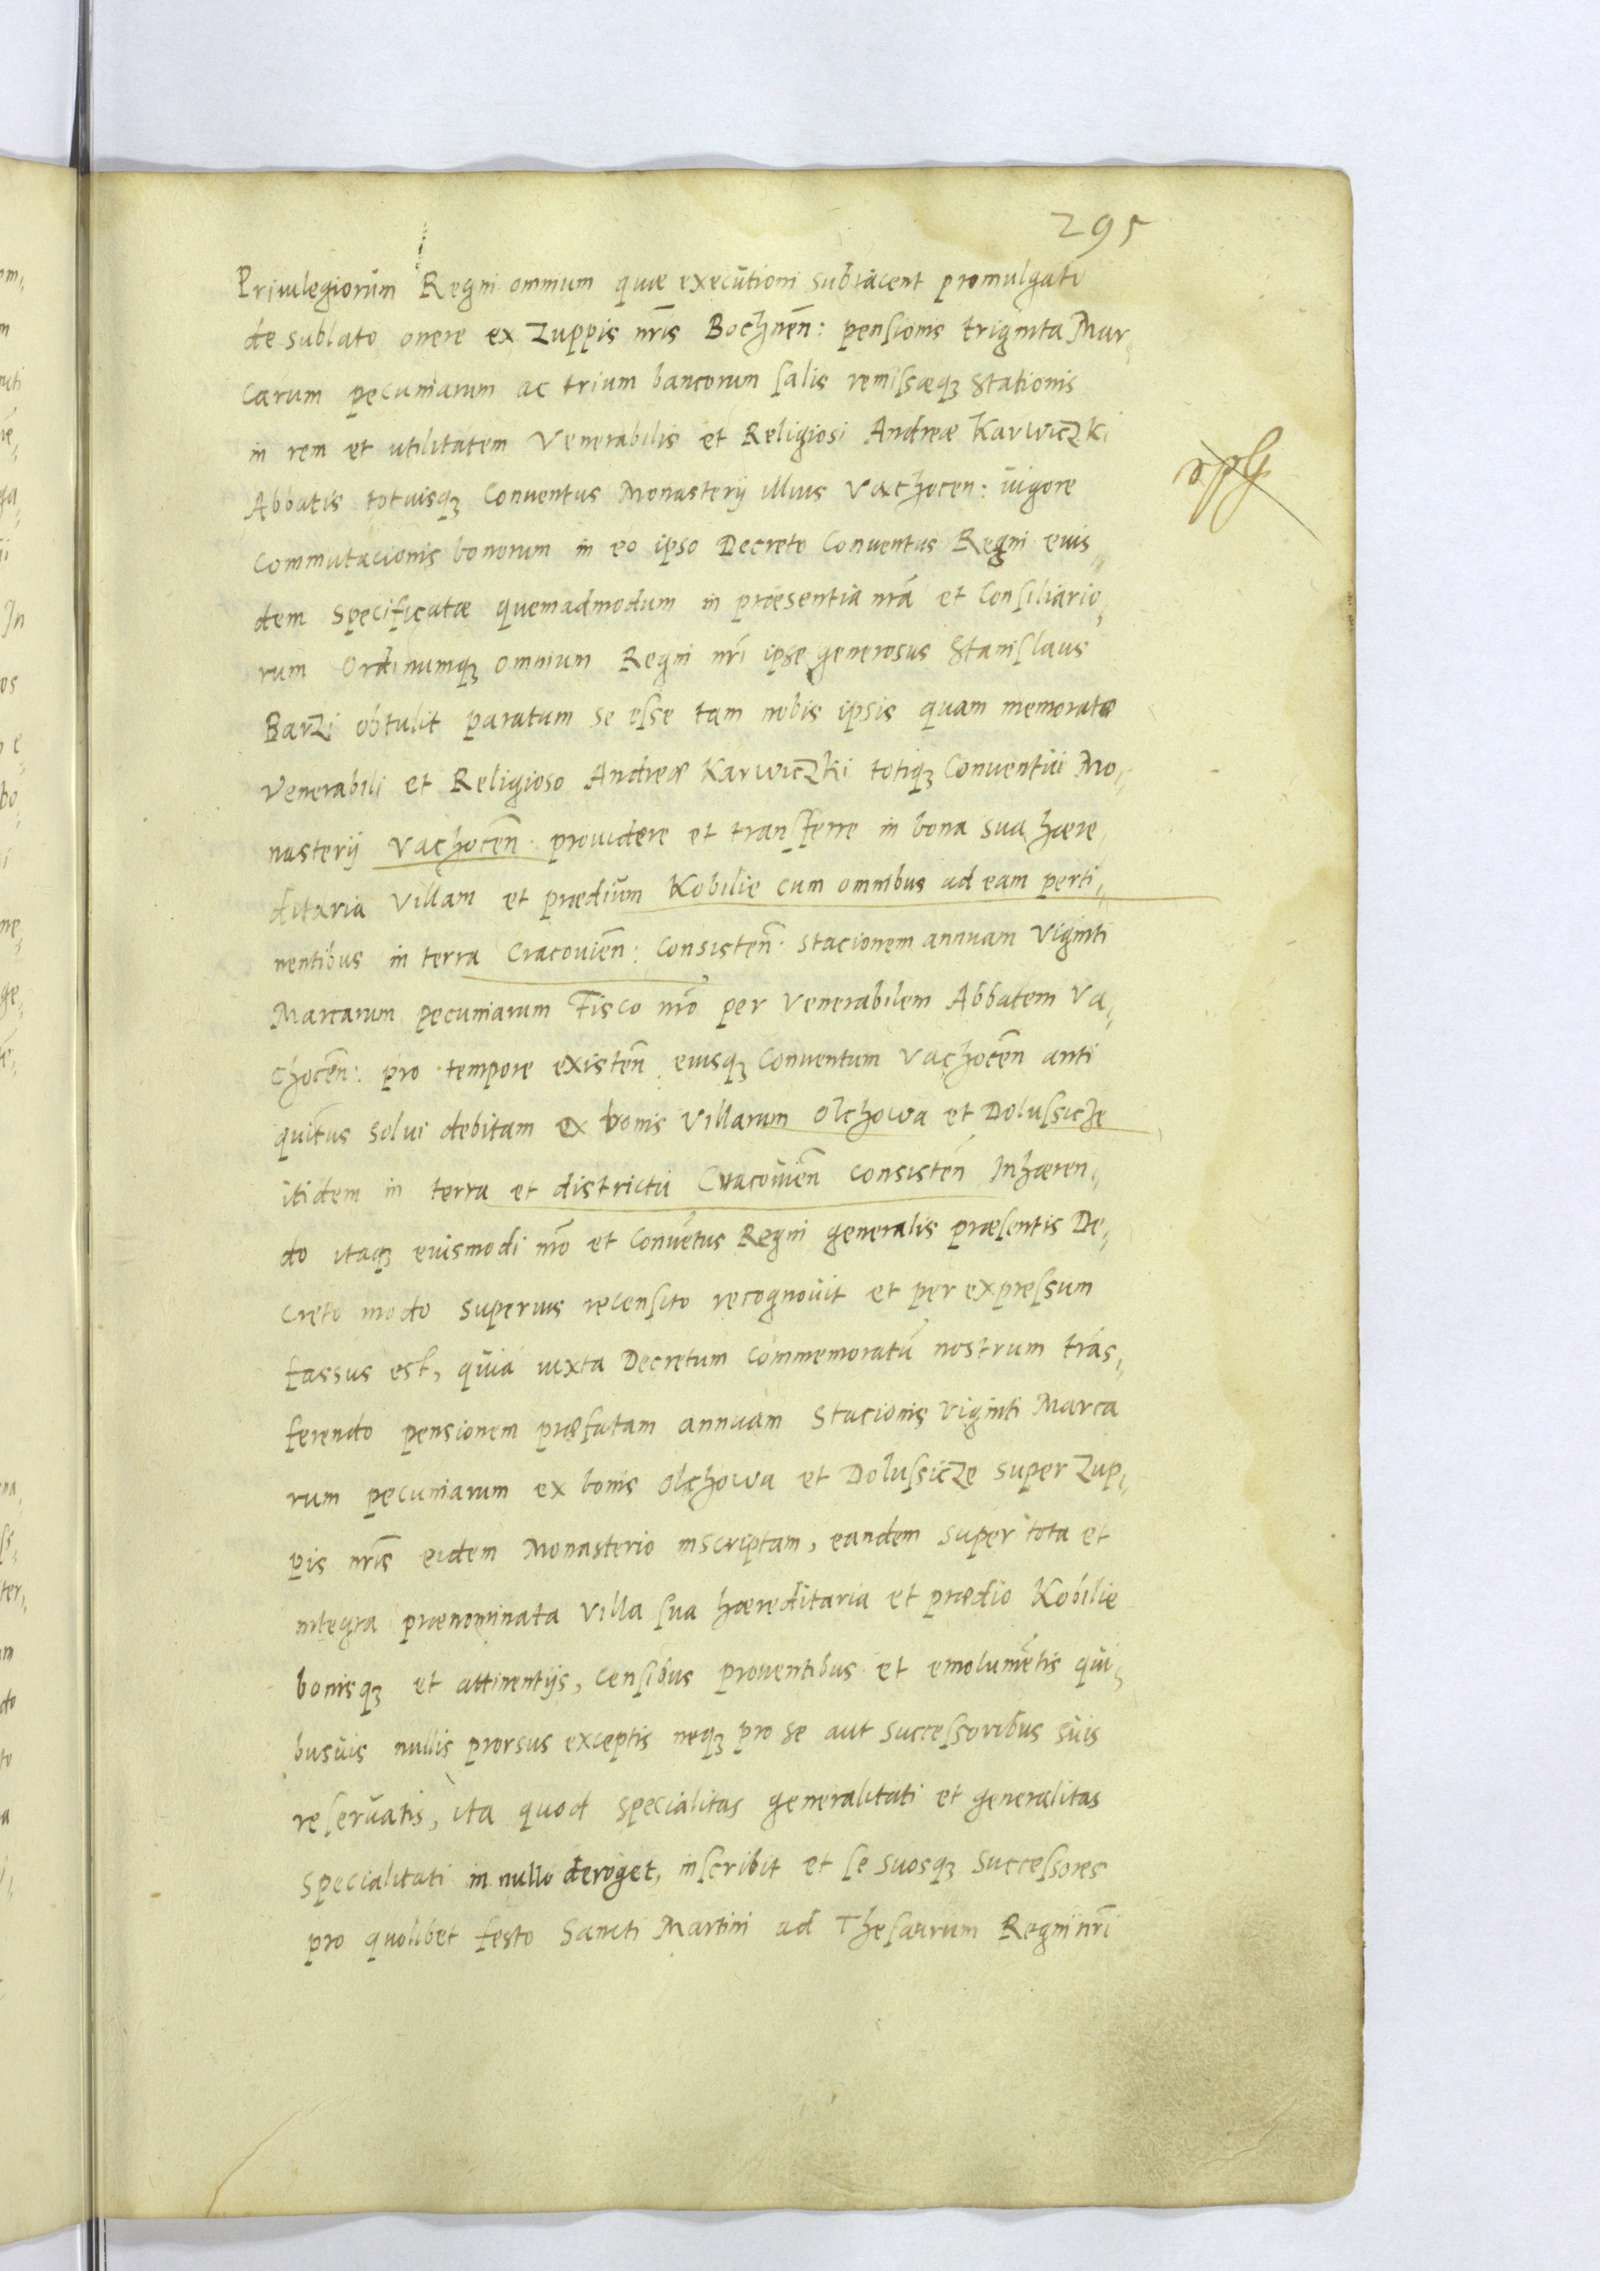 295
Privilegiorum Regni omnium quae executioni subiacent promulgato
de sublato onere ex Zuppis nrīs Bochnēn: pensionis triginta Mar„
carum pecuniarum ac trium bancorum salis remissaeqȝ stationis
in rem et utilitatem Venerabilis et Religiosi Andreae Karwiczki
Abbatis totiusqȝ Conventus Monasterij illius Vachocen: vigore
commutacionis bonorum in eo ipso Decreto Conventus Regni eius„
dem specificatae quemadmodum in praesentia nrā et Consiliario„
rum Ordinumqȝ omnium Regni nrī ipse generosus Stanislaus
Barzi obtulit paratum se esse tam nobis ipsis quam memorato
Venerabili et Religioso Andreae Karwiczki totiqȝ Conventui Mo„
nasterij Vachocēn. providere et transferre in bona sua haere„
ditaria Villam et praedium Kobilie cum omnibus ad eam perti„
nentibus in terra Cracoviēn: consistēn. stacionem annuam Viginti
Marcarum pecuniarum Fisco nrō per Venerabilem Abbatem Va„
chocēn: pro tempore existēn eiusqȝ Conventum Vachocēn anti
quitus solvi debitam ex bonis Villarum Olchowa et Dolussicze
itidem in terra et districtu Cracoviēn consistēn Inhaeren„
do itaqȝ eiusmodi nrō et Convētus Regni generalis praesentis De„
creto modo superius recensito recognovit et per expressum
fassus est, quia iuxta Decretum commemoratū nostrum trās„
ferendo pensionem praefatam annuam Stacionis viginti Marca
rum pecuniarum ex bonis Olchowa et Dolussicze super Zup„
pis nrīs eidem Monasterio inscriptam, eandem super tota et
integra praenominata Villa sua haereditaria et praedio Kobilie
bonisqȝ et attinentijs, censibus proventibus et emolumētis qui„
busvis nullis prorsus exceptis neqȝ pro se aut successoribus suis
reservatis, ita quod specialitas generalitati et generalitas
specialitati in nullo deroget, inscribit et se suosqȝ successores
pro quolibet festo Sancti Martini ad Thesaurum Regni nrī